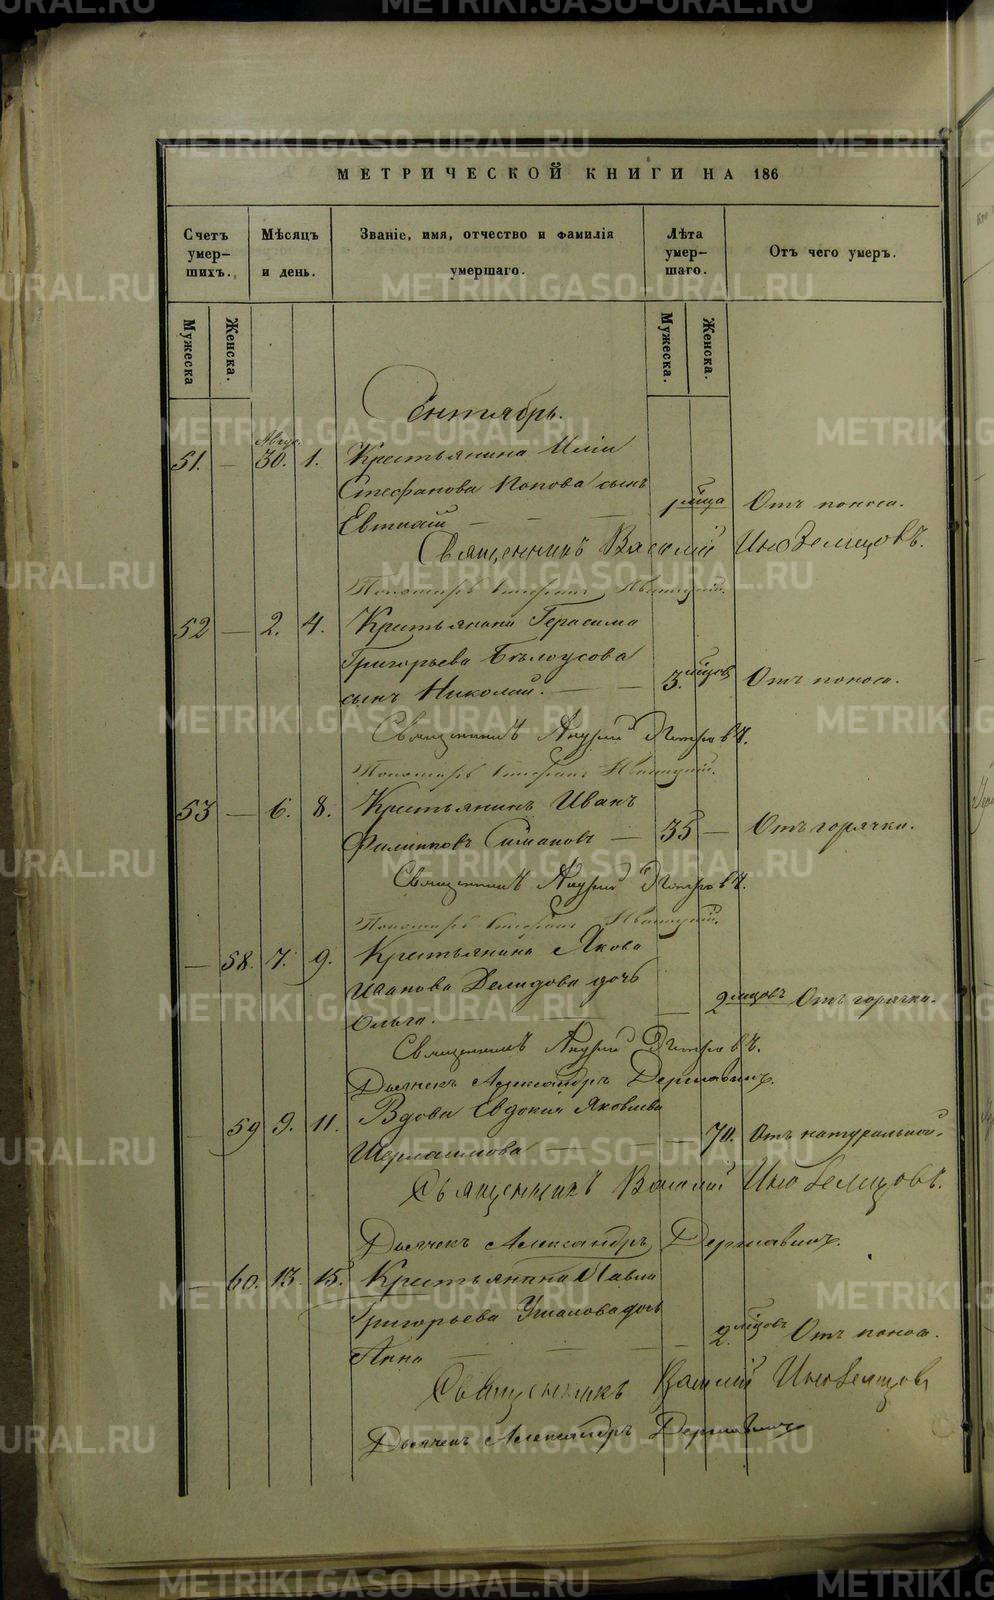 МЕТРИЧЕСКОЙ КНИГИ НА 186
Счетъ умер-шихъ.
Мѣсяцъ и день.
Званіе, имя, отчество и фамилія умершаго.
Лѣта умер-шаго.
Отъ чего умеръ.
Мужеска
Женска.
Мужеска.
Женска.
Сентябрь.
Авгус.
51. — 30. 1. Крестьянина Иліи
Стефанова Попова сынъ
1 м͠ца Отъ поноса.
Евтихій — — —
Священникъ Василій Иноземцовъ.
Пономарь
52 — 2. 4. Крестьянина Герасима
Григорьева Бѣлоусова
сынъ Николай. — — 3. м͠цовъ Отъ поноса.
Священникъ Андрей Петровъ.
Пономарь
53 — 6. 8. Крестьянинъ Иванъ
Филипповъ — 35 — Отъ горячки.
Священникъ Андрей Петровъ.
Пономарь
— 58. 7. 9. Крестьянина Якова
Иванова Демидова дочь
Ольга. — — 2 м͠цовъ Отъ горячки.
Священникъ Андрей Петровъ.
Дьячекъ Александръ Державинъ.
— 59 9. 11. Вдова Евдокія Яковлева
— — 70. Отъ натуральной.
Священникъ Василій Иноземцовъ.
Дьячекъ Александръ Державинъ.
— 60. 13. 15. Крестьянина Павла
Григорьева Ушакова дочь
2. м͠цовъ Отъ поноса.
Анна — — — —
Священникъ Василій Иноземцовъ
Дьячекъ Александръ Державинъ
METRIKI.GASO-URAL.RU